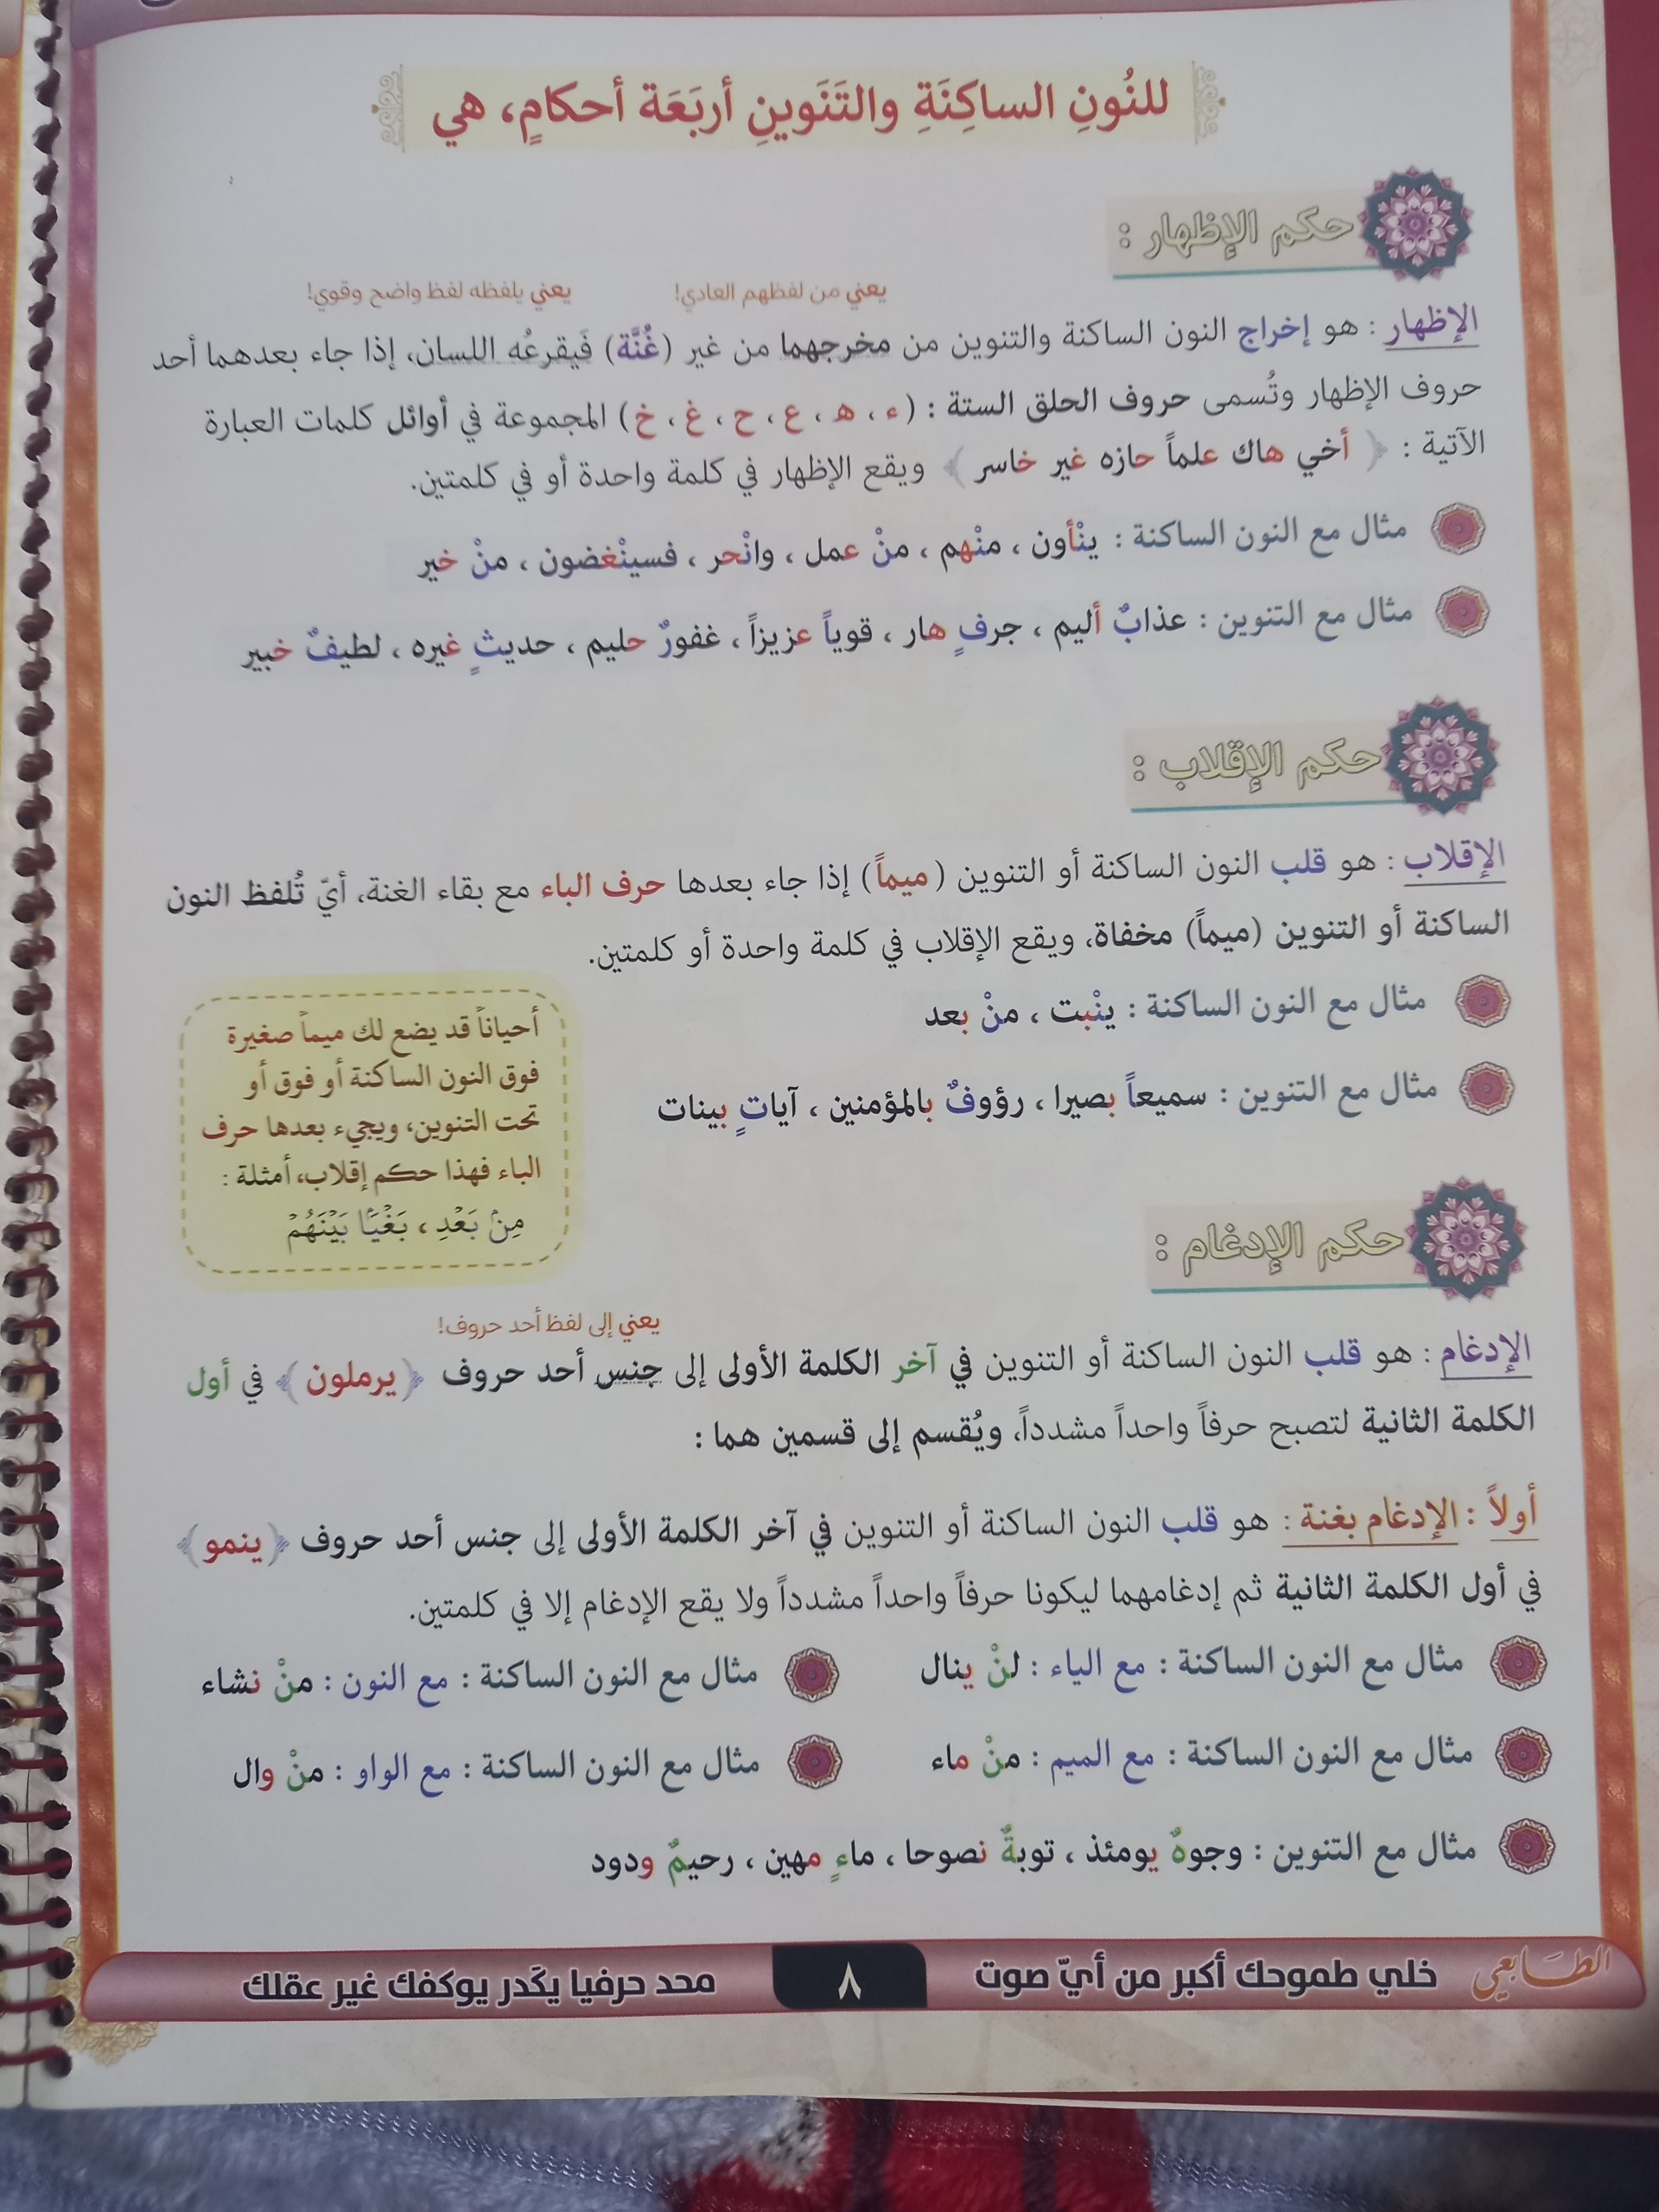 للنُونِ الساكِنَةِ والتَنَوينِ أربَعَة أحكامٍ، هي
حكم الإظهار :
يعني من لفظهم العادي! يعني يلفظه لفظ واضح وقوي!
الإظهار : هو إخراج النون الساكنة والتنوين من مخرجهما من غير (غُنَّة) فَيقرعُه اللسان، إذا جاء بعدهما أحد
حروف الإظهار وتُسمى حروف الحلق الستة : (ء ، هـ ، ع ، ح ، غ ، خ) المجموعة في أوائل كلمات العبارة
الآتية : ﴿ أخي هاك علماً حازه غير خاسر ﴾ ويقع الإظهار في كلمة واحدة أو في كلمتين.
مثال مع النون الساكنة : ينْأون ، منْهم ، منْ عمل ، وانْحر ، فسينْغضون ، منْ خير
مثال مع التنوين : عذابٌ أليم ، جرفٍ هار ، قوياً عزيزاً ، غفورٌ حليم ، حديثٍ غيره ، لطيفٌ خبير
حكم الإقلاب :
الإقلاب : هو قلب النون الساكنة أو التنوين (ميماً) إذا جاء بعدها حرف الباء مع بقاء الغنة، أيّ تُلفظ النون
الساكنة أو التنوين (ميماً) مخفاة، ويقع الإقلاب في كلمة واحدة أو كلمتين.
مثال مع النون الساكنة : ينْبت ، منْ بعد
مثال مع التنوين : سميعاً بصيرا ، رؤوفٌ بالمؤمنين ، آياتٍ بينات
أحياناً قد يضع لك ميماً صغيرة
فوق النون الساكنة أو فوق أو
تحت التنوين، ويجيء بعدها حرف
الباء فهذا حكم إقلاب، أمثلة :
مِنۢ بَعْدِ ، بَغْيَۢا بَيْنَهُمْ
حكم الإدغام :
يعني إلى لفظ أحد حروف!
الإدغام : هو قلب النون الساكنة أو التنوين في آخر الكلمة الأولى إلى جنس أحد حروف ﴿يرملون﴾ في أول
الكلمة الثانية لتصبح حرفاً واحداً مشدداً، ويُقسم إلى قسمين هما :
أولاً : الإدغام بغنة : هو قلب النون الساكنة أو التنوين في آخر الكلمة الأولى إلى جنس أحد حروف ﴿ينمو﴾
في أول الكلمة الثانية ثم إدغامهما ليكونا حرفاً واحداً مشدداً ولا يقع الإدغام إلا في كلمتين.
مثال مع النون الساكنة : مع الياء : لنْ ينال
مثال مع النون الساكنة : مع النون : منْ نشاء
مثال مع النون الساكنة : مع الميم : منْ ماء
مثال مع النون الساكنة : مع الواو : منْ وال
مثال مع التنوين : وجوهٌ يومئذ ، توبةٌ نصوحا ، ماءٍ مهين ، رحيمٌ ودود
الطابعي
خلي طموحك أكبر من أيّ صوت
٨
محد حرفيا يكَدر يوكفك غير عقلك